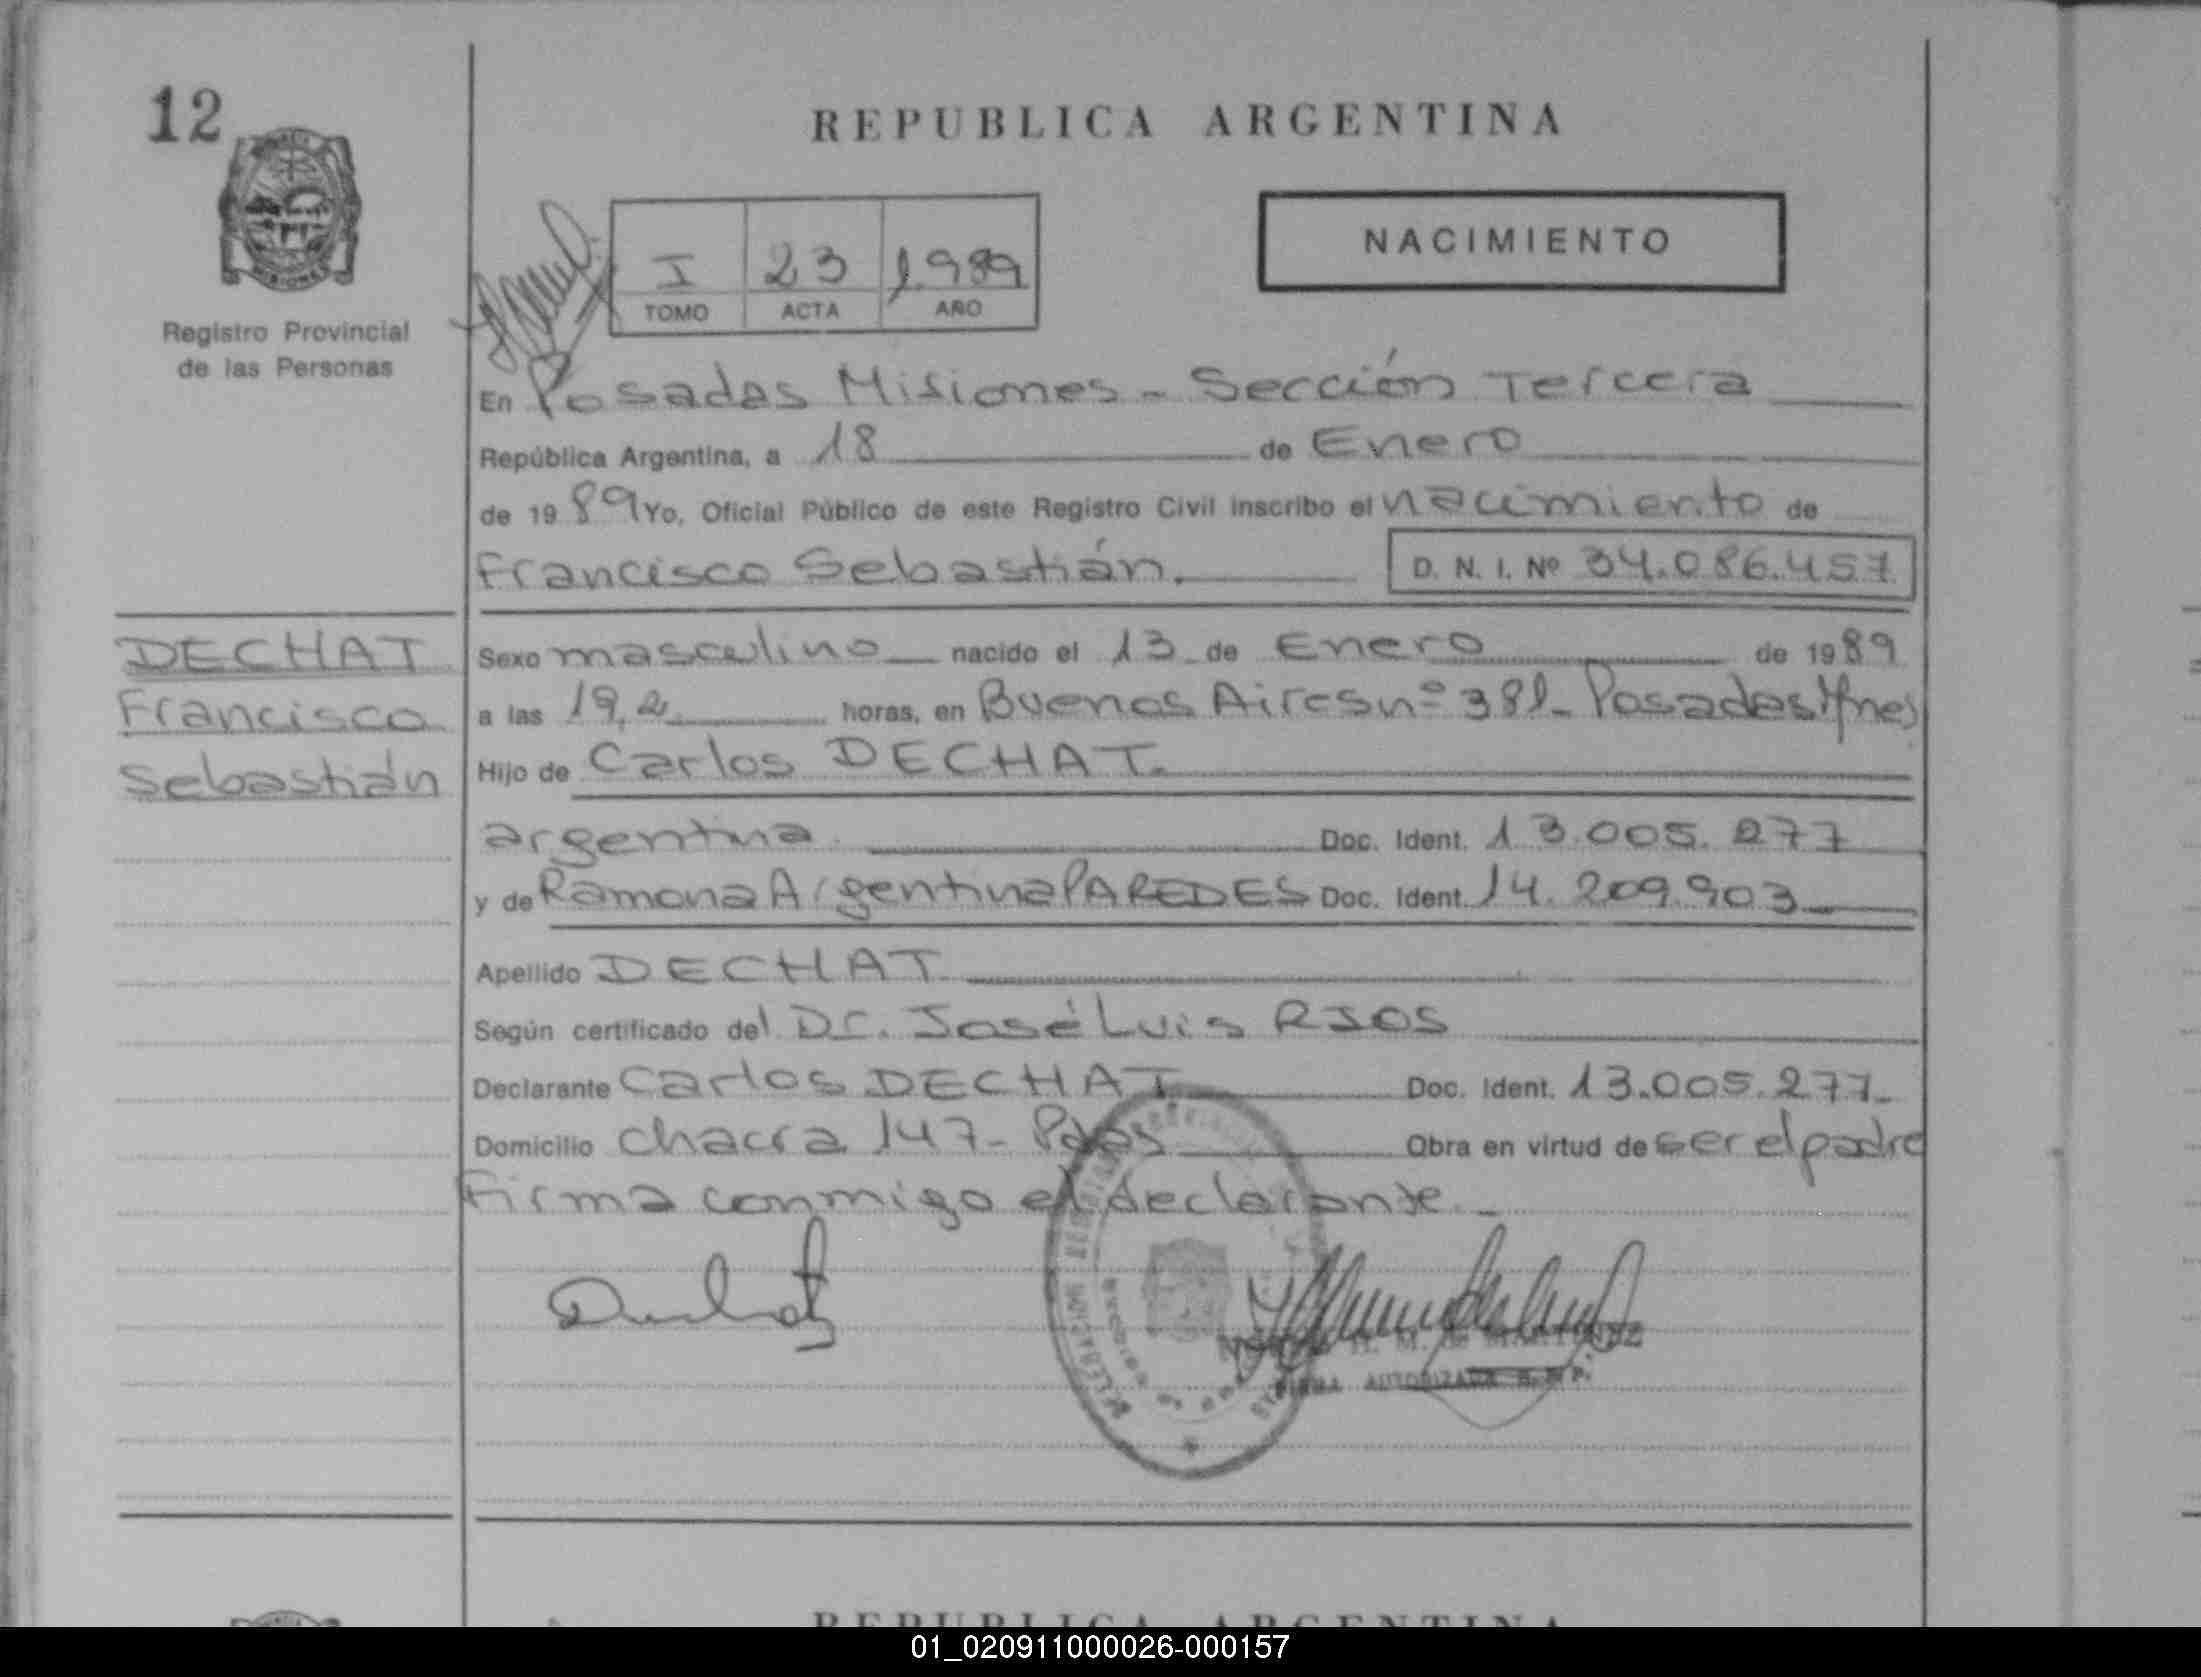 12
REPUBLICA ARGENTINA
NACIMIENTO
I 23 1.989
TOMO ACTA AÑO
Registro Provincial
de las Personas
En Posadas Misiones - Sección Tercera
República Argentina, a 18 de Enero
de 1989 Yo, Oficial Público de este Registro Civil inscribo el nacimiento de
Francisco Sebastián. D. N. I. Nº 34.086.457
DECHAT
Francisco
Sebastián
Sexo masculino nacido el 13 de Enero de 1989
a las 19,2 horas, en Buenos Aires nº 381- Posadas Mnes
Hijo de Carlos DECHAT.
argentina Doc. Ident. 13.005.277
y de Ramona Argentina PAREDES Doc. Ident. 14.209.903
Apellido DECHAT
Según certificado del Dr. José Luis RIOS
Declarante Carlos DECHAT Doc. Ident. 13.005.277
Domicilio chacra 147- Pdas Obra en virtud de ser el padre
Firma conmigo el declarante.-
FIRMA AUTORIZADA R.P.P.
REPUBLICA ARGENTINA
01_020911000026-000157